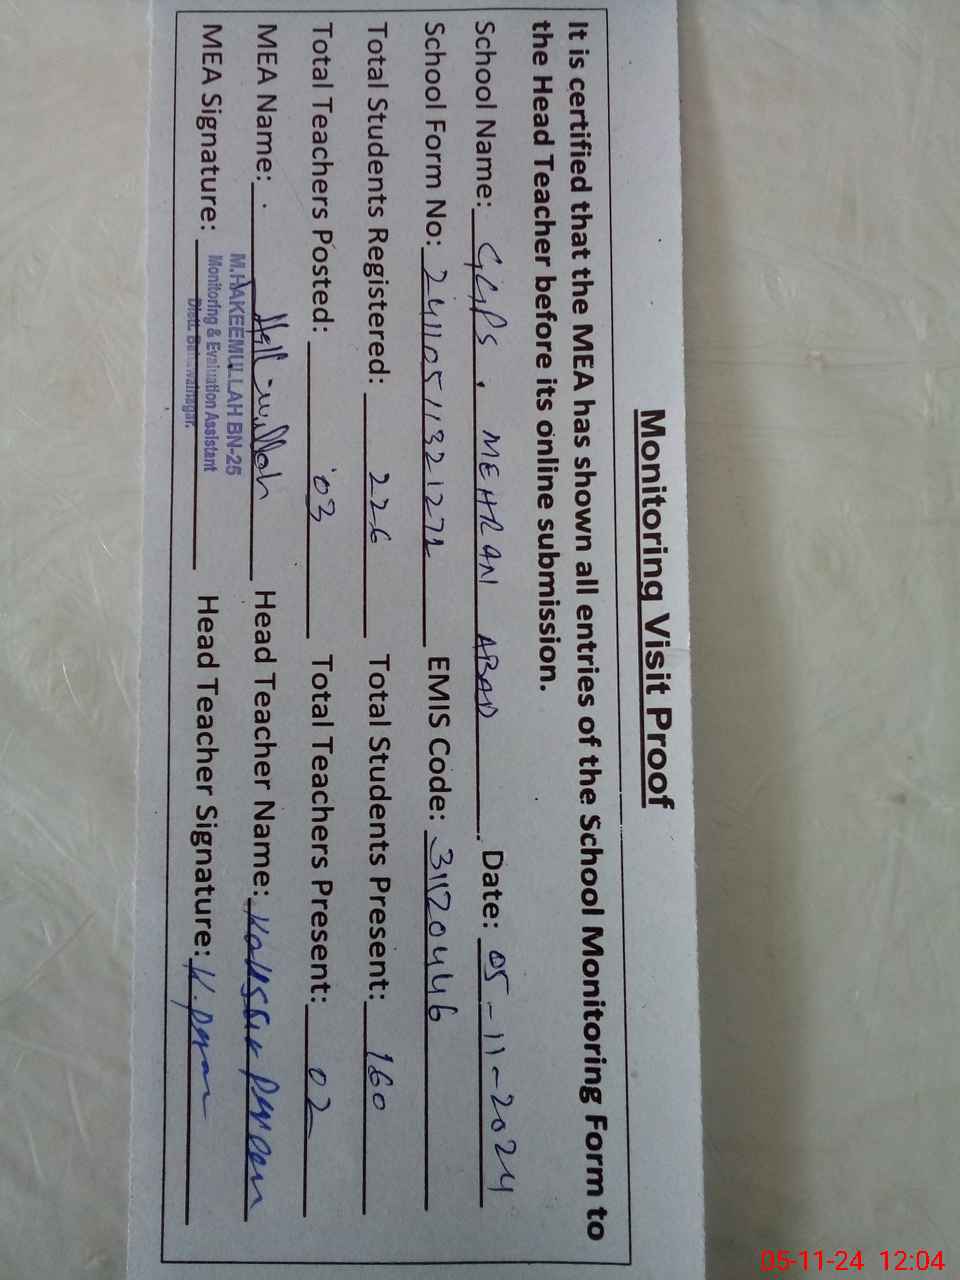 Monitoring Visit Proof
It is certified that the MEA has shown all entries of the School Monitoring Form to
the Head Teacher before its online submission.
School Name: GGPS, MEHRAN ABAD Date: 05-11-2024
School Form No: EMIS Code: 31120446
Total Students Registered: 226 Total Students Present: 160
Total Teachers Posted: 03 Total Teachers Present: 02
MEA Name: Head Teacher Name: Kaussar Parveen
M.HAKEEMULLAH BN-25
MEA Signature: Head Teacher Signature: K.
Monitoring & Evaluation Assistant
Distt. Bahawalnagar.
05-11-24 12:04